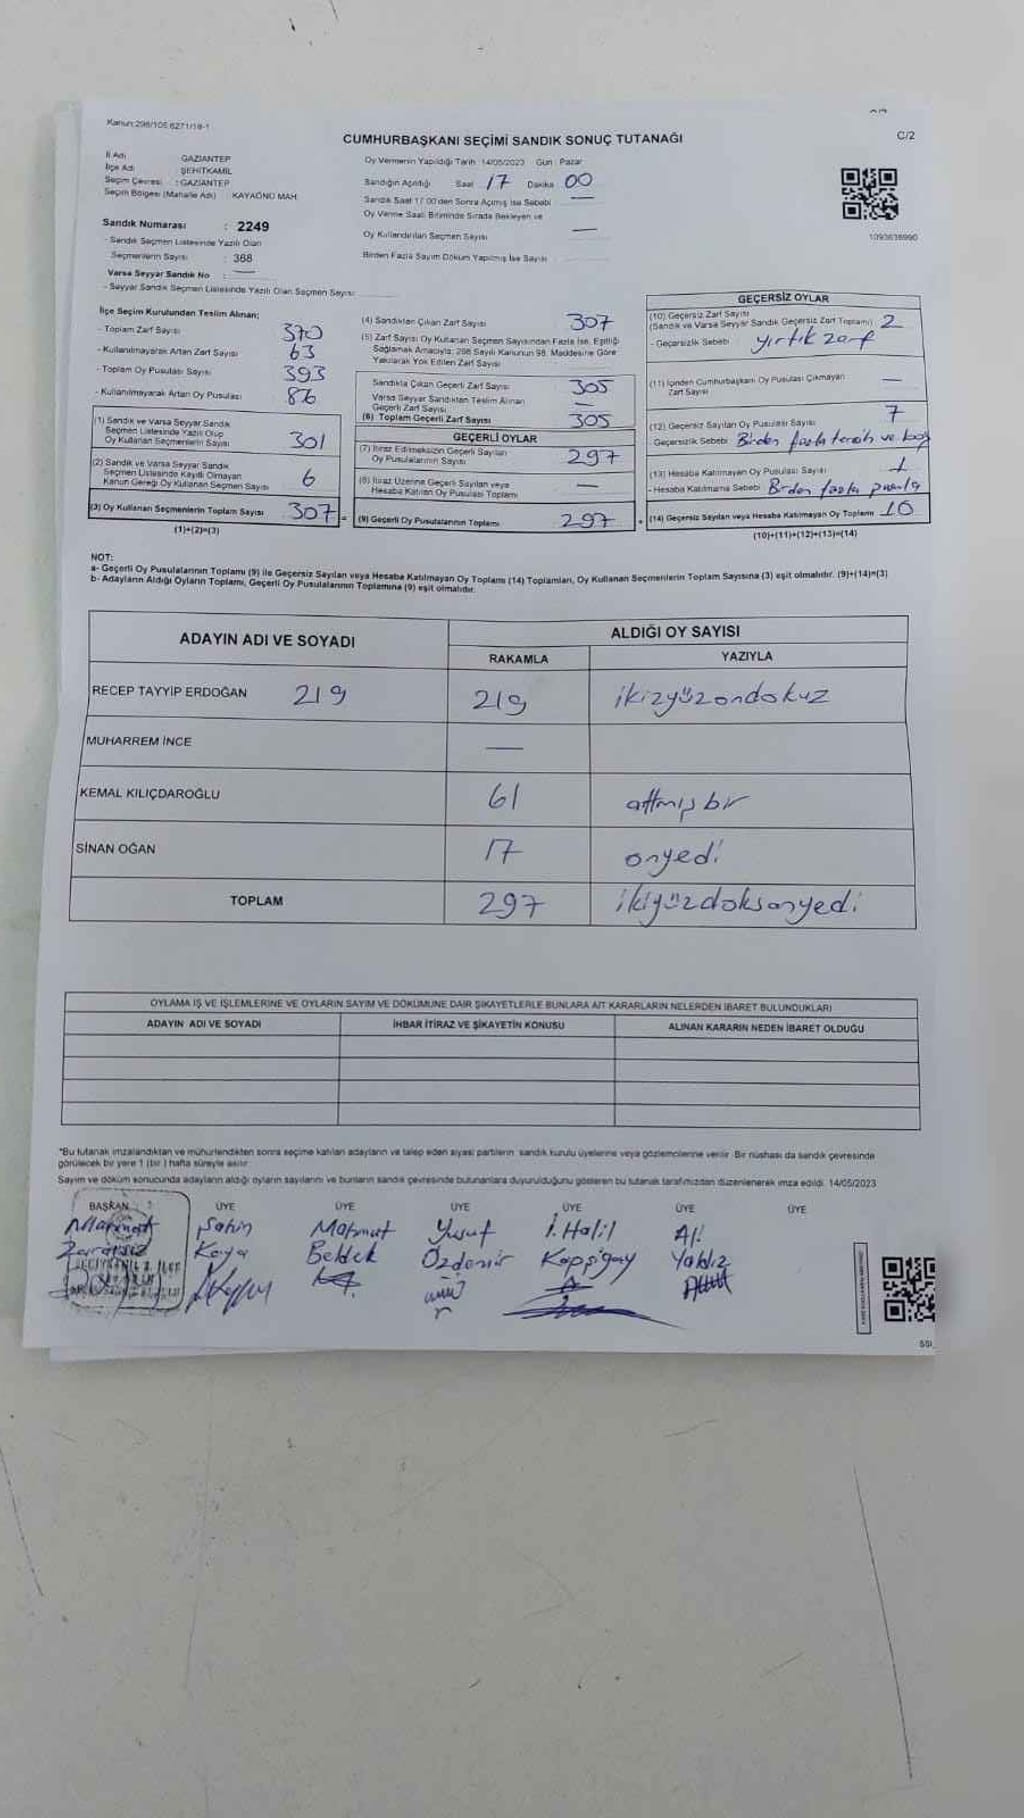 Kanun:298/105.6271/18-1
C/2
CUMHURBAŞKANI SEÇİMİ SANDIK SONUÇ TUTANAĞI
İl Adı GAZİANTEP
İlçe Adı ŞEHİTKAMİL
Seçim Çevresi : GAZİANTEP
Seçim Bölgesi (Mahalle Adı) : KAYAÖNÜ MAH
Sandık Numarası : 2249
- Sandık Seçmen Listesinde Yazılı Olan
Seçmenlerin Sayısı : 368
Varsa Seyyar Sandık No : —
- Seyyar Sandık Seçmen Listesinde Yazılı Olan Seçmen Sayısı
Oy Vermenin Yapıldığı Tarih : 14/05/2023 Gün : Pazar
Sandığın Açıldığı Saat 17 Dakika 00
Sandık Saat 17.00'den Sonra Açılmış İse Sebebi —
Oy Verme Saati Bitiminde Sırada Bekleyen ve
Oy Kullandırılan Seçmen Sayısı —
Birden Fazla Sayım Döküm Yapılmış İse Sayısı
1093638990
İlçe Seçim Kurulundan Teslim Alınan;
- Toplam Zarf Sayısı 370
- Kullanılmayarak Artan Zarf Sayısı 63
- Toplam Oy Pusulası Sayısı 393
- Kullanılmayarak Artan Oy Pusulası 86
(1) Sandık ve Varsa Seyyar Sandık
Seçmen Listesinde Yazılı Olup
Oy Kullanan Seçmenlerin Sayısı 301
(2) Sandık ve Varsa Seyyar Sandık
Seçmen Listesinde Kayıtlı Olmayan
Kanun Gereği Oy Kullanan Seçmen Sayısı 6
(3) Oy Kullanan Seçmenlerin Toplam Sayısı 307
(1)+(2)=(3)
(4) Sandıktan Çıkan Zarf Sayısı 307
(5) Zarf Sayısı Oy Kullanan Seçmen Sayısından Fazla İse, Eşitliği
Sağlamak Amacıyla; 298 Sayılı Kanunun 98. Maddesine Göre
Yakılarak Yok Edilen Zarf Sayısı
Sandıkta Çıkan Geçerli Zarf Sayısı 305
Varsa Seyyar Sandıktan Teslim Alınan
Geçerli Zarf Sayısı —
(6) Toplam Geçerli Zarf Sayısı 305
GEÇERLİ OYLAR
(7) İtiraz Edilmeksizin Geçerli Sayılan
Oy Pusulalarının Sayısı 297
(8) İtiraz Üzerine Geçerli Sayılan veya
Hesaba Katılan Oy Pusulası Toplamı —
(9) Geçerli Oy Pusulalarının Toplamı 297
GEÇERSİZ OYLAR
(10) Geçersiz Zarf Sayısı
(Sandık ve Varsa Seyyar Sandık Geçersiz Zarf Toplamı) 2
- Geçersizlik Sebebi yırtık zarf
(11) İçinden Cumhurbaşkanı Oy Pusulası Çıkmayan
Zarf Sayısı —
(12) Geçersiz Sayılan Oy Pusulası Sayısı 7
- Geçersizlik Sebebi Birden fazla tercih ve boş
(13) Hesaba Katılmayan Oy Pusulası Sayısı 1
- Hesaba Katılmama Sebebi Birden fazla pusula
(14) Geçersiz Sayılan veya Hesaba Katılmayan Oy Toplamı 10
(10)+(11)+(12)+(13)=(14)
NOT:
a- Geçerli Oy Pusulalarının Toplamı (9) ile Geçersiz Sayılan veya Hesaba Katılmayan Oy Toplamı (14) Toplamları, Oy Kullanan Seçmenlerin Toplam Sayısına (3) eşit olmalıdır. (9)+(14)=(3)
b- Adayların Aldığı Oyların Toplamı, Geçerli Oy Pusulalarının Toplamına (9) eşit olmalıdır.
ADAYIN ADI VE SOYADI
ALDIĞI OY SAYISI
RAKAMLA
YAZIYLA
RECEP TAYYİP ERDOĞAN 219 219 ikizyüzondokuz
MUHARREM İNCE —
KEMAL KILIÇDAROĞLU 61 altmış bir
SİNAN OĞAN 17 onyedi
TOPLAM 297 ikiyüzdoksanyedi
OYLAMA İŞ VE İŞLEMLERİNE VE OYLARIN SAYIM VE DÖKÜMÜNE DAİR ŞİKAYETLERLE BUNLARA AİT KARARLARIN NELERDEN İBARET BULUNDUKLARI
ADAYIN ADI VE SOYADI
İHBAR İTİRAZ VE ŞİKAYETİN KONUSU
ALINAN KARARIN NEDEN İBARET OLDUĞU
*Bu tutanak imzalandıktan ve mühürlendikten sonra seçime katılan adayların ve talep eden siyasi partilerin sandık kurulu üyelerine veya gözlemcilerine verilir. Bir nüshası da sandık çevresinde
görülecek bir yere 1 (bir) hafta süreyle asılır.
Sayım ve döküm sonucunda adayların aldığı oyların sayılarını ve bunların sandık çevresinde bulunanlara duyurulduğunu gösteren bu tutanak tarafımızdan düzenlenerek imza edildi. 14/05/2023
BAŞKAN ÜYE ÜYE ÜYE ÜYE ÜYE ÜYE
Şahin Mahmut Yusuf İ. Halil Ali
Kaya Beldek Özdemir Kapşigay Yaldız